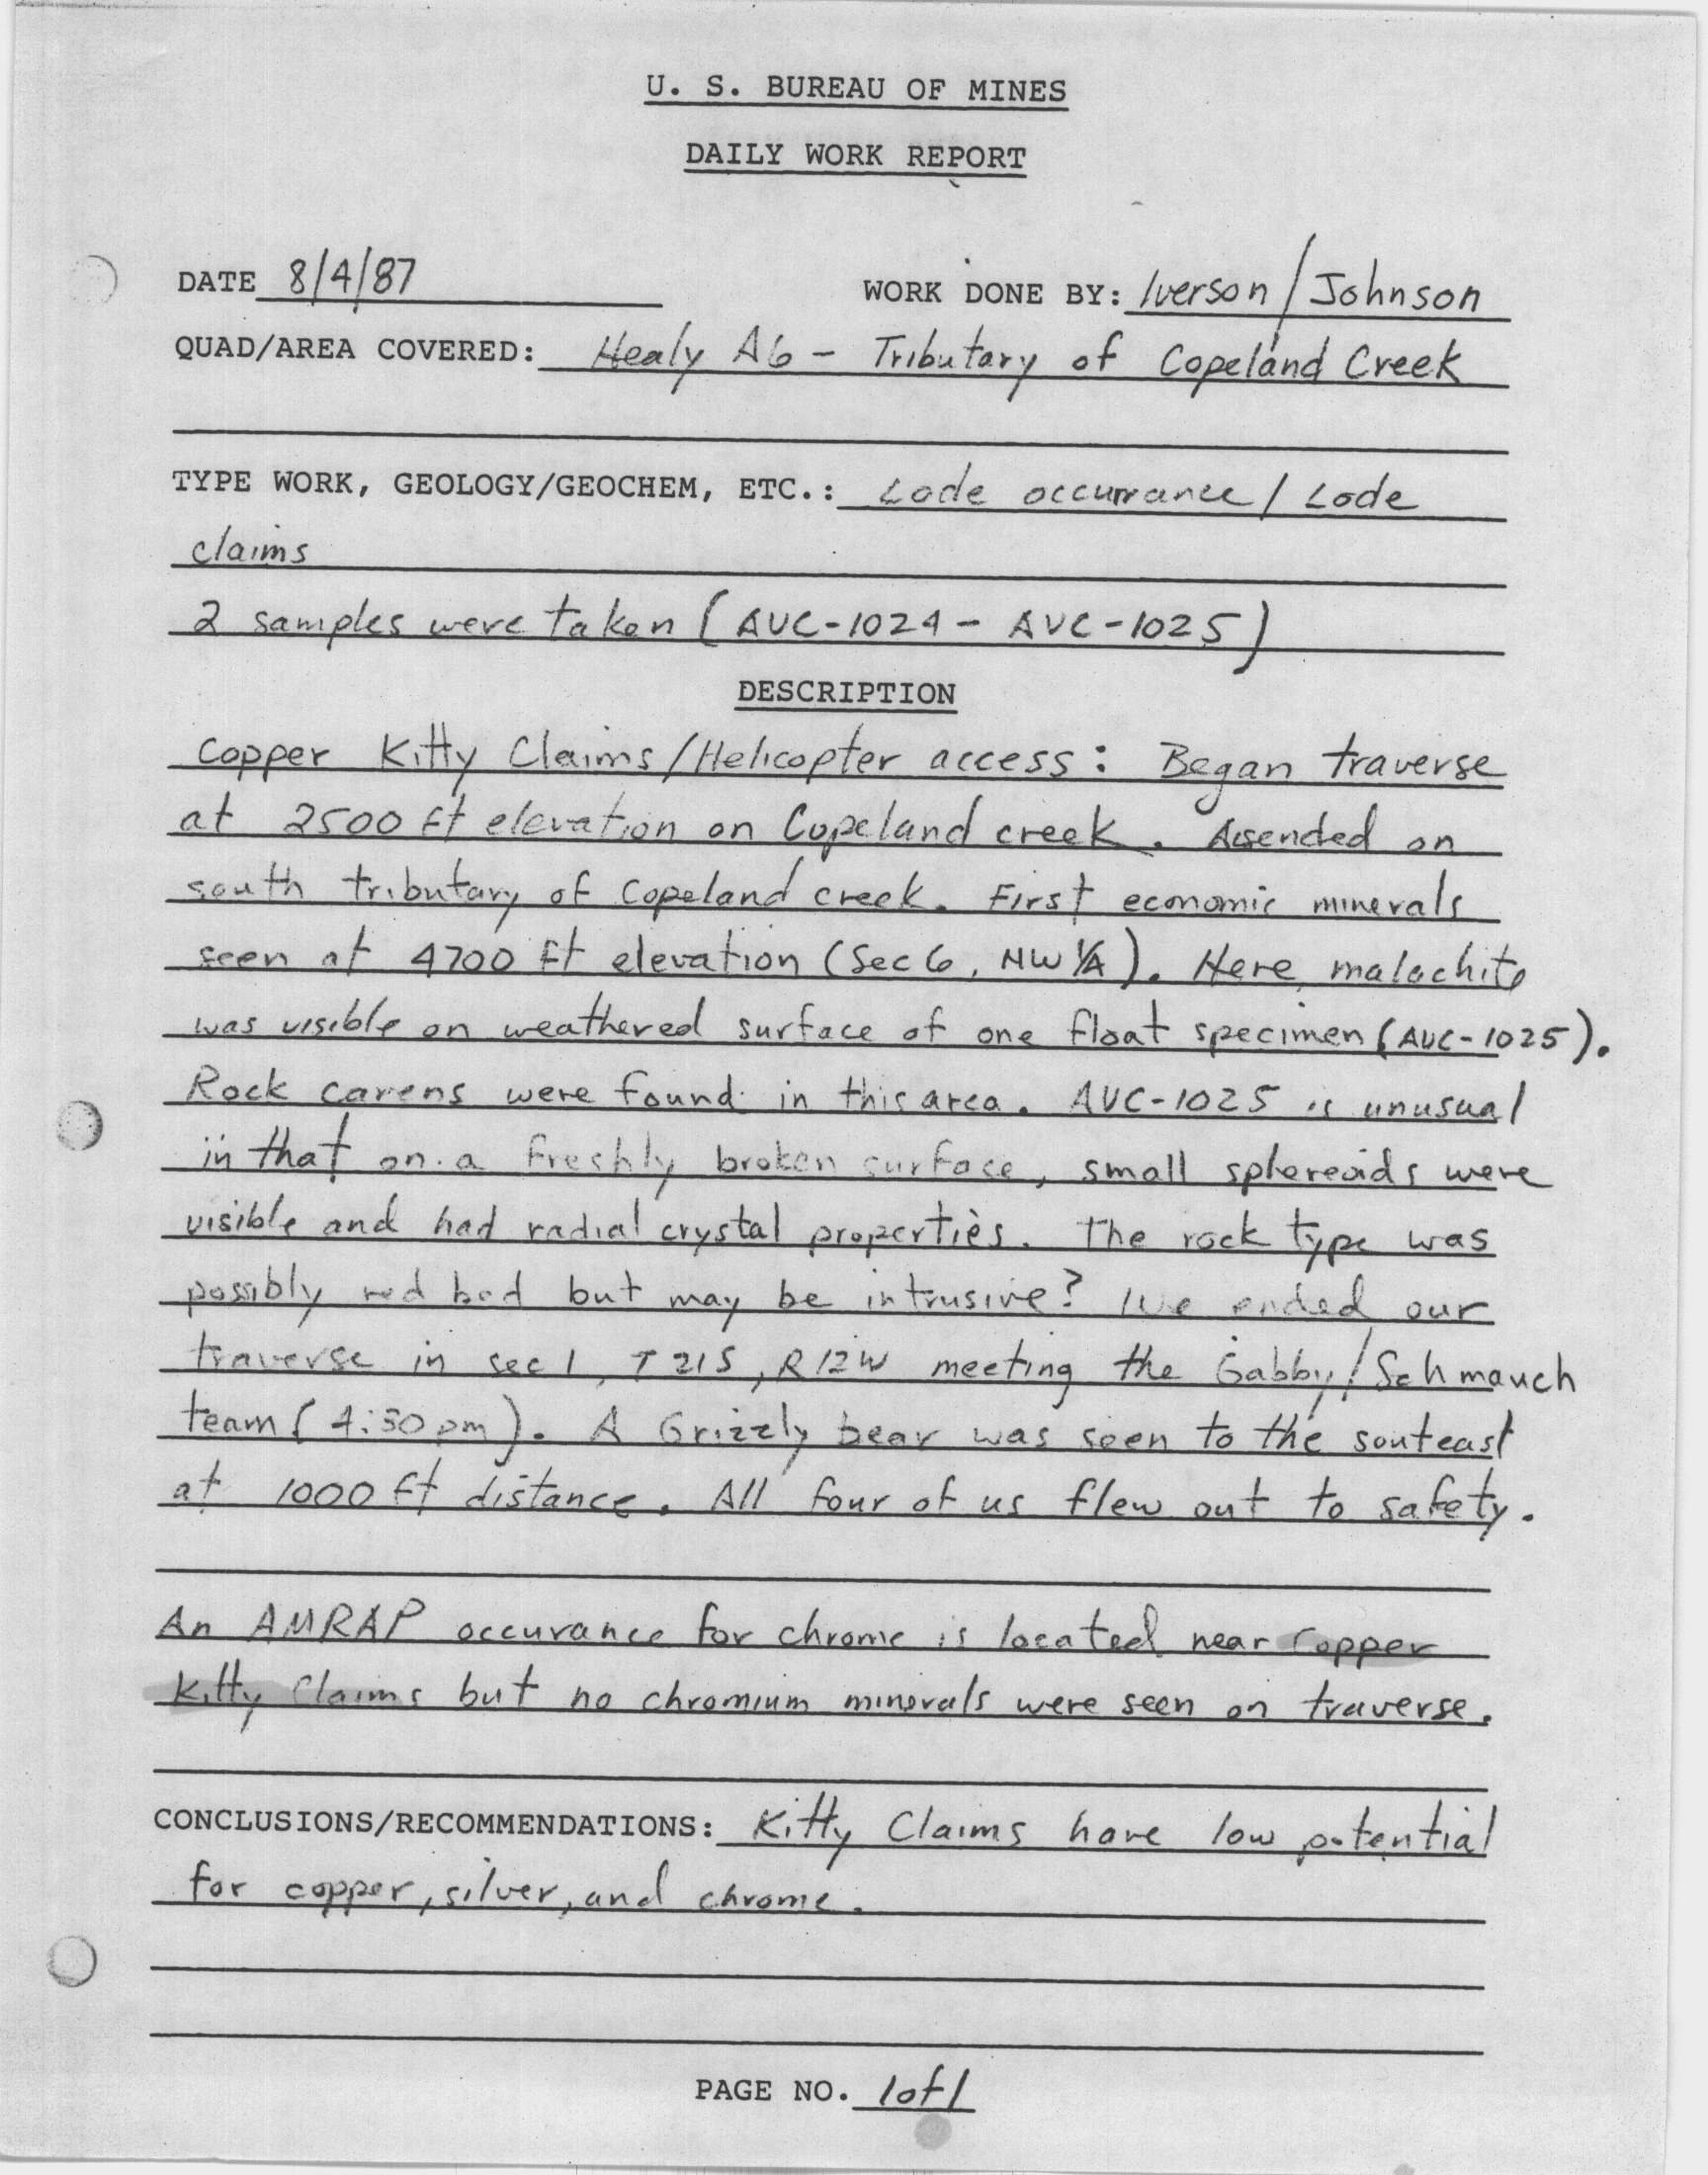 U. S. BUREAU OF MINES
DAILY WORK REPORT
DATE 8/4/87 WORK DONE BY: Iverson/Johnson
QUAD/AREA COVERED: Healy A6 - Tributary of Copeland Creek
TYPE WORK, GEOLOGY/GEOCHEM, ETC.: Lode occurrance / Lode
claims
2 samples were taken (AVC-1024 - AVC-1025)
DESCRIPTION
Copper Kitty Claims/Helicopter access: Began traverse
at 2500 ft elevation on Copeland creek. Asended on
south tributary of Copeland creek. First economic minerals
seen at 4700 ft elevation (Sec 6, NW 1/4). Here, malachite
was visible on weathered surface of one float specimen (AVC-1025).
Rock carens were found in this area. AVC-1025 is unusual
in that on a freshly broken surface, small sphereoids were
visible and had radial crystal properties. The rock type was
possibly red bed but may be intrusive? We ended our
traverse in sec 1, T21S, R12W meeting the Gabby/Schmauch
team (4:30 pm). A Grizzly bear was seen to the souteast
at 1000 ft distance. All four of us flew out to safety.
An AMRAP occurance for chrome is located near Copper
Kitty Claims but no chromium minerals were seen on traverse.
CONCLUSIONS/RECOMMENDATIONS: Kitty Claims have low potential
for copper, silver, and chrome.
PAGE NO. 1 of 1